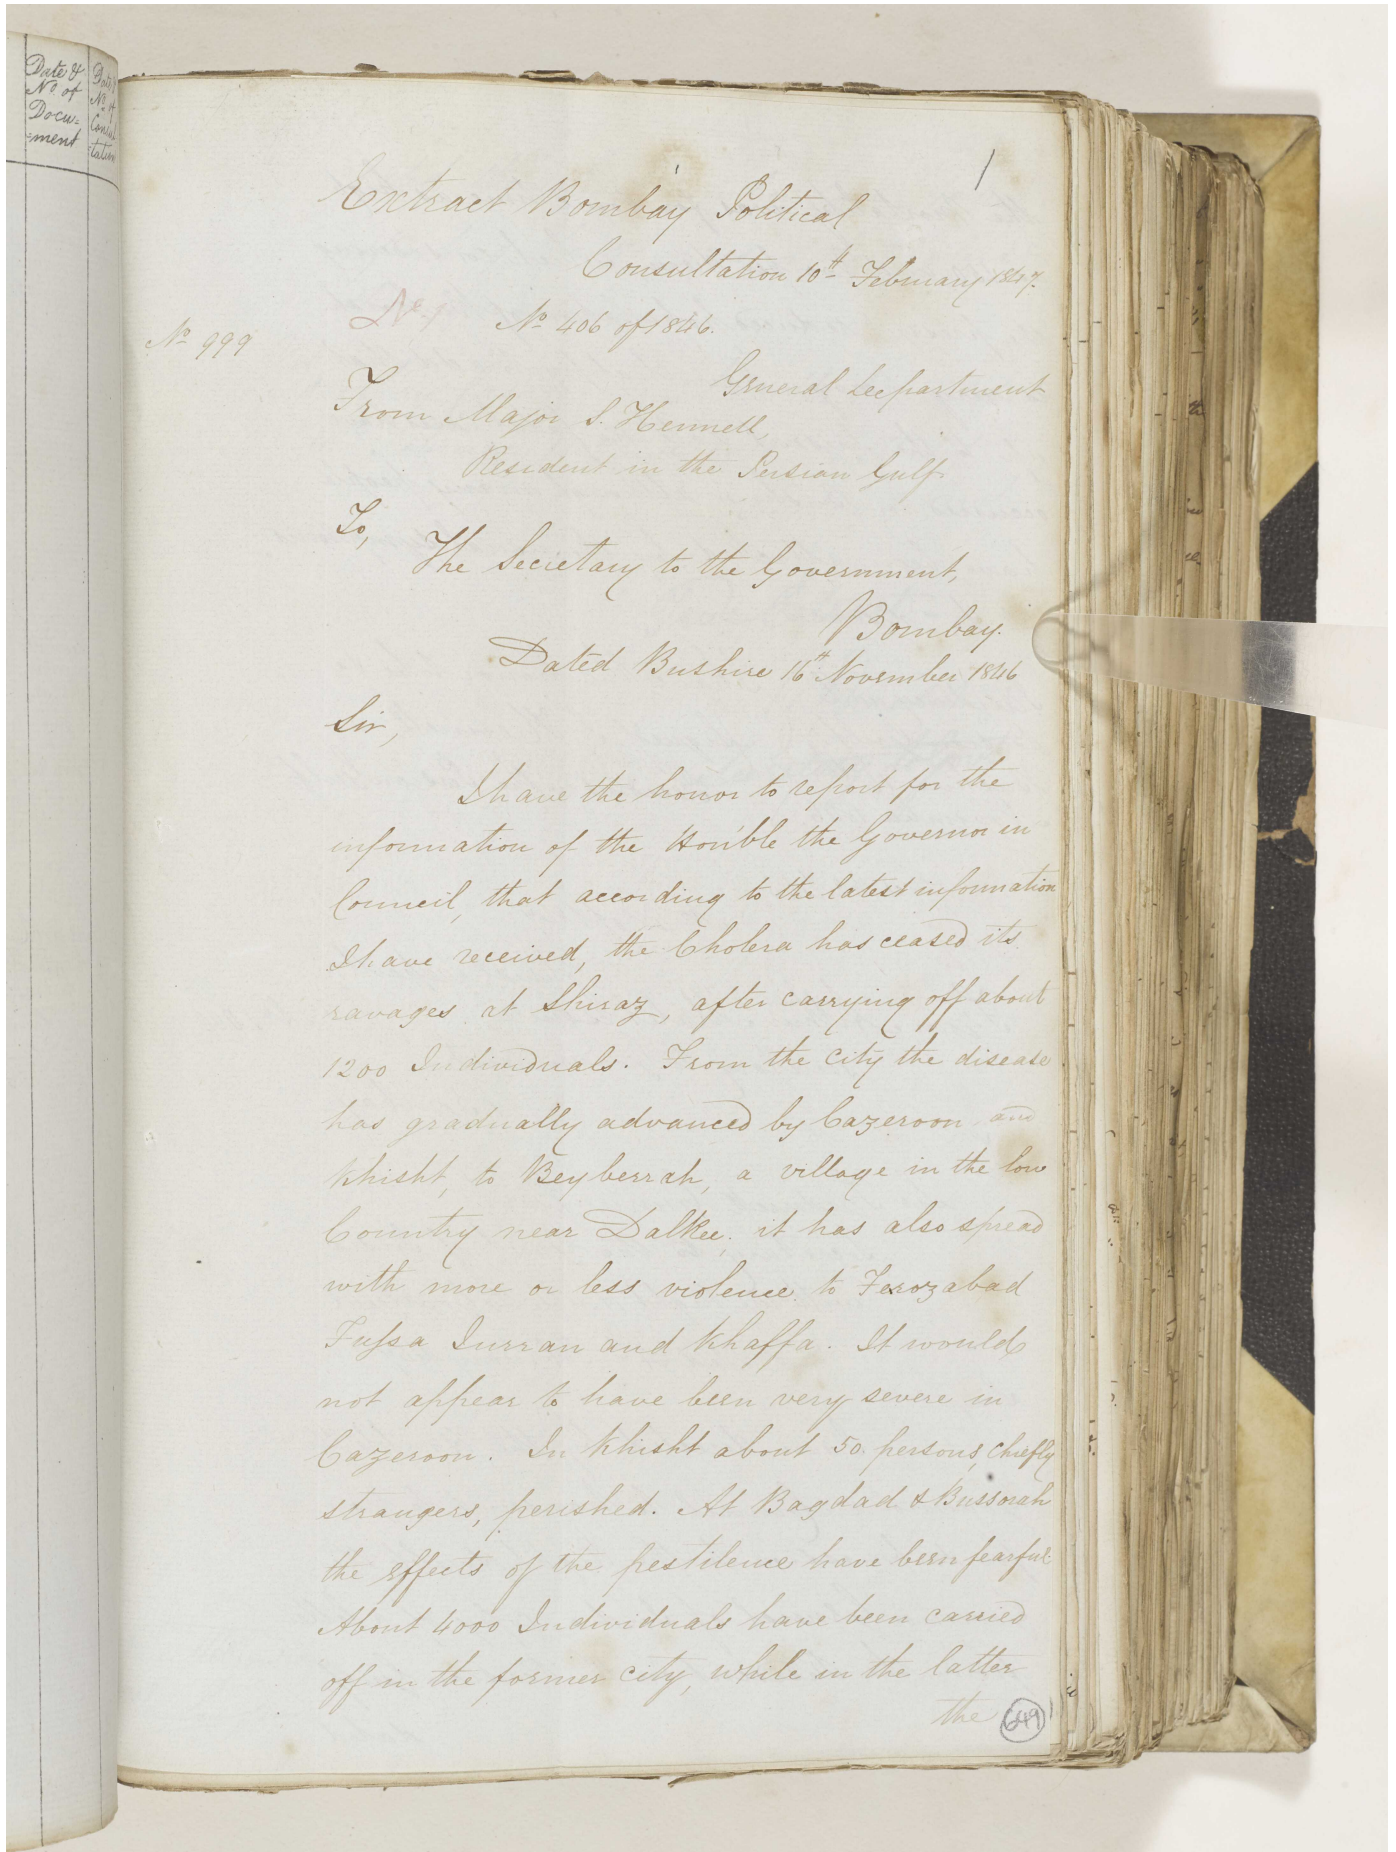 Date &
No. of
Docu=
=ment
Date &
No. of
Consul
tation
1
Extract Bombay Political
Consultation 10th February 1847.
No. 1 No. 406 of 1846.
No. 999
General Department
From Major S. Hennell,
Resident in the Persian Gulf
To,
The Secretary to the Government,
Bombay.
Dated Bushire 16th November 1846
Sir,
I have the honor to report for the
information of the Hon'ble the Governor in
Council, that according to the latest information
I have received, the Cholera has ceased its
ravages at Shiraz, after carrying off about
1200 Individuals. From the city the disease
has gradually advanced by Cazeroon and
Khisht, to Beyberrah, a village in the low
Country near Dalkee, it has also spread
with more or less violence to Ferozabad
Fussa Jurran and Khaffa. It would
not appear to have been very severe in
Cazeroon. In Khisht about 50 persons, chiefly
strangers, perished. At Bagdad & Bussorah
the effects of the pestilence have been fearful
About 4000 Individuals have been carried
off in the former city, while in the latter
the
649